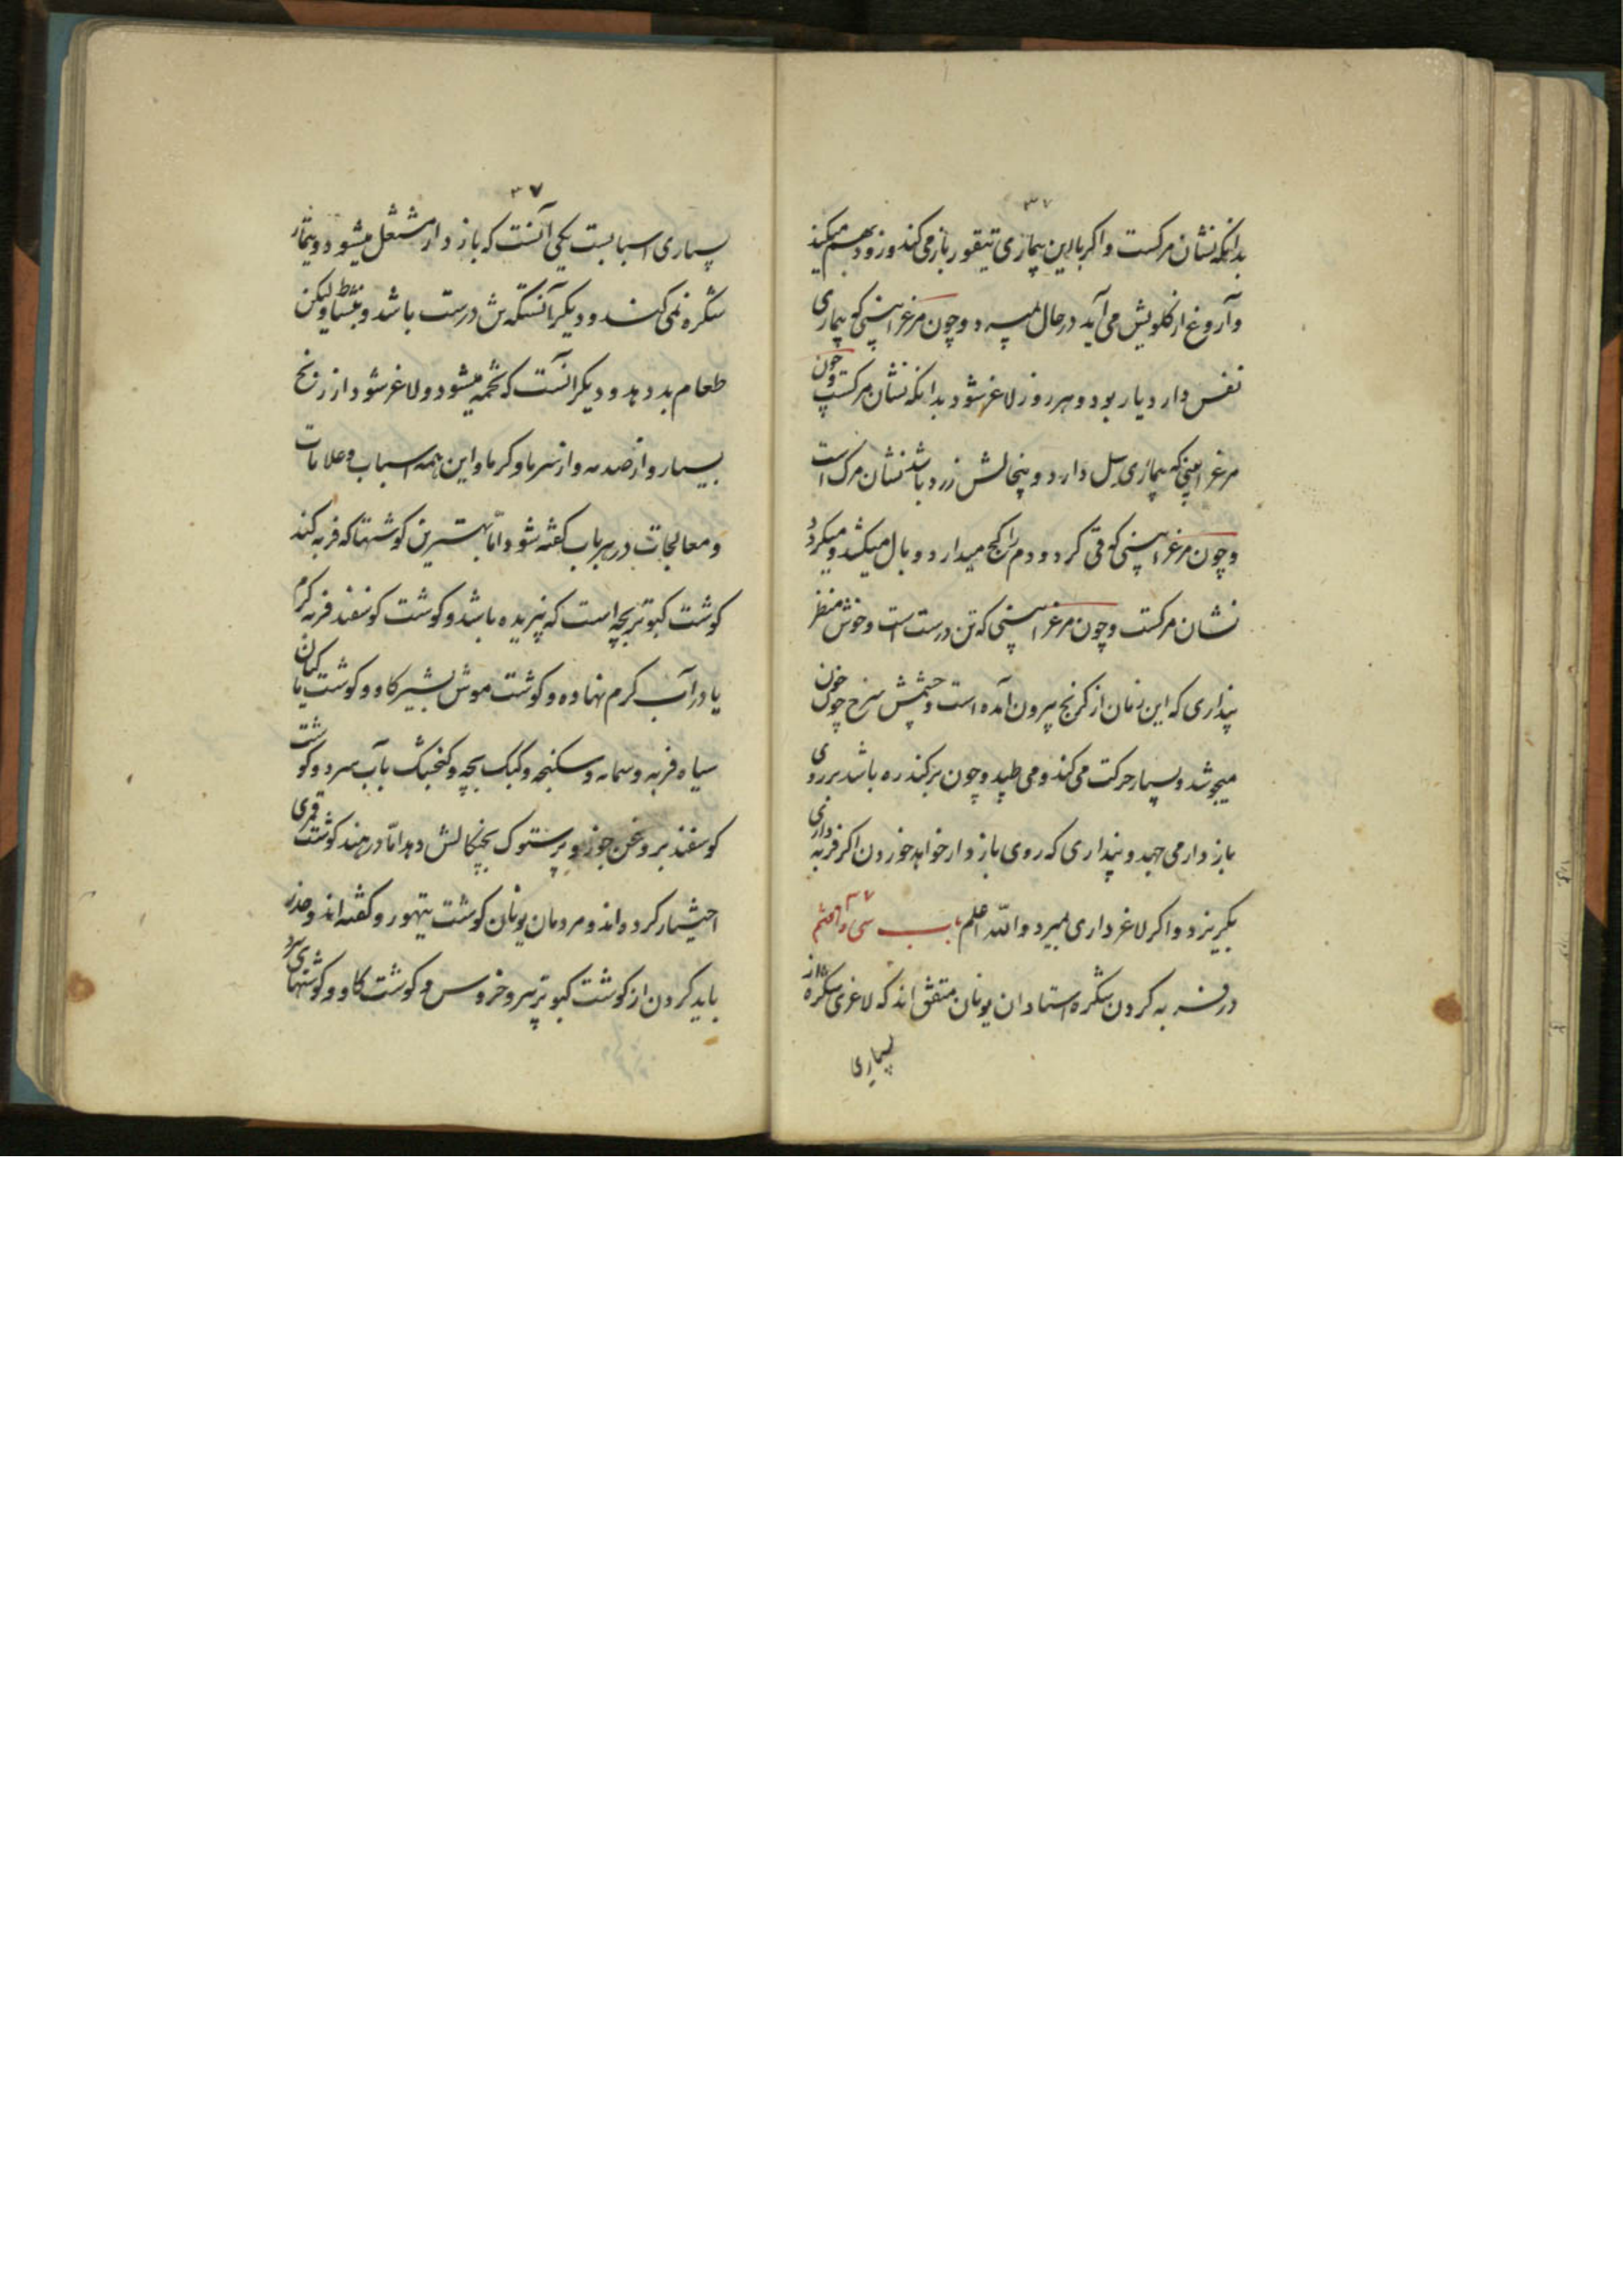 ۳۷
بدانکه نشان مرکست و اکر با این بیماری تیقور باز می‌کند و زود بهم میکند
و آروغ از کلویش می‌آید در حال میرد و چون مرغرا بینی که بیماری
نفس دارد یار بود و هر روز لاغر شود بدانکه نشان مرکست و چون
مرغرا بینی که بیماری سل دارد و پنجالش زرد باشد نشان مرک است
و چون مرغرا بینی که قی کرد و دم را کج میدارد و بال میکشد و میکرد
نشان مرکست و چون مرغرا بینی که تن درست است و خوش منظر
پنداری که این زمان از کریج بیرون آمده است و چشمش سرخ چون خون
میجوشد و بسیار حرکت می‌کند و می طپد و چون برکندره باشد بر روی
باز دار می جهد و پنداری که روی باز دار خواهد خوردن اکر فربه داری
بکریزد و اکر لاغر داری بمیرد و الله اعلم باب سی و هفتم ۳۷
در فربه کردن شکره استادان یونان متفق اند که لاغری شکره از
بسیاری
۳۷
بسیاری اسبابست یکی آنست که باز دار مشتغل میشود و تیمار
شکره نمی کند و دیکر آنستکه تنش درست باشد و بنشاط ولیکن
طعام بد دهد و دیکر انست که تخمه میشود و لاغر شود از رنج
بسیار و از صدمه و از سرما و کرما و این همه اسباب و علامات
و معالجات در هر باب کفته شود اما بهترین کوشتها که فربه کند
کوشت کبوتر بچه است که نپریده باشد و کوشت کوسفند فربه کرم
یا در آب کرم نهاده و کوشت موش بشیر کاو و کوشت ماکیان
سیاه فربه و سمانه و سکنجه و کبک بچه و کنجشک بآب سرد و کوشت
کوسفند بروغن جوز و پرستوک بچنکالش دهد اما در هند کوشت قمری
اختیار کرده‌اند و مردمان یونان کوشت تیهور و کفته اند و حذر
باید کردن از کوشت کبوتر پیر و خروس و کوشت کاو و کوشتهای سرد